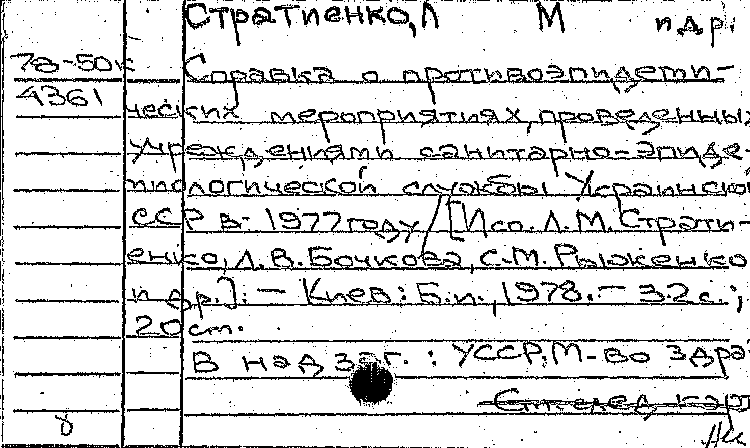 Стратиенко, Л М и др.
78-50к Справка о противоэпидеми-
4361 ческих мероприятиях, проведенных
учреждениями санитарно-эпиде-
миологической службы Украинской
ССР в 1977 году / [Исп. Л.М. Страти-
енко, Л.В. Бочкова, С.М. Рыженко
и др.]. — Киев: Б.и., 1978. — 32 с.;
20 см.
В надзаг.: УССР, М-во здра
См. след карт